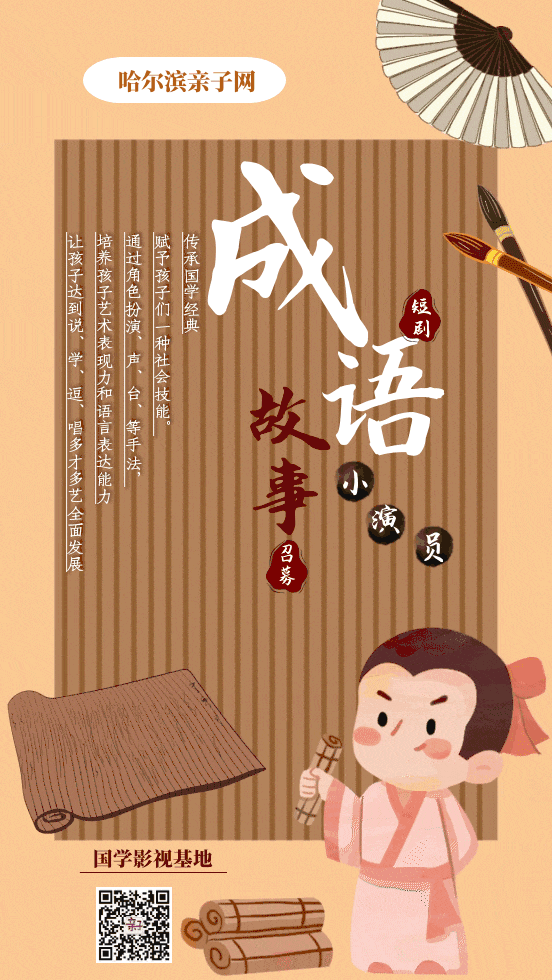 哈尔滨亲子网
成语
短剧
故事
召募
小演员
传承国学经典
赋予孩子们一种社会技能。
通过角色扮演、声、台、等手法，
培养孩子艺术表现力和语言表达能力
让孩子达到说、学、逗、唱多才多艺全面发展
国学影视基地